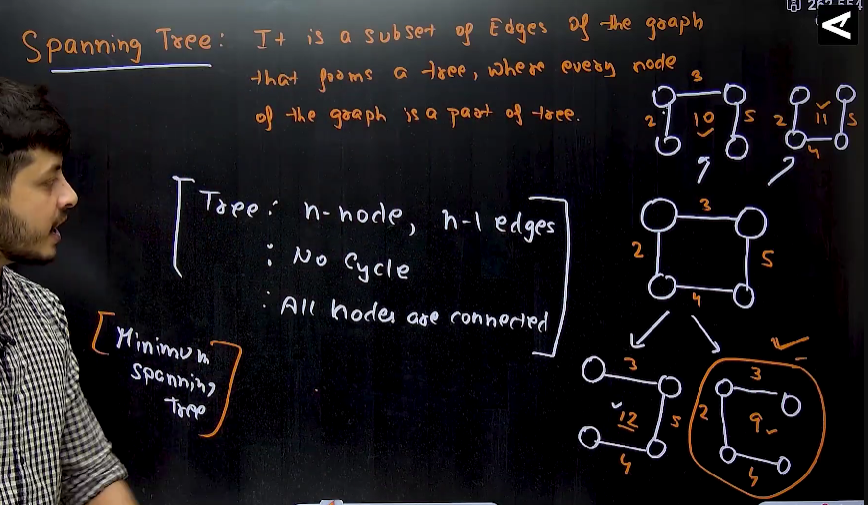 Spanning Tree: It is a subset of Edges of the graph
that forms a tree, where every node
of the graph is a part of tree.
3
2 10 5
2 11 5
4
Tree: n-node, n-1 edges
: No Cycle
: All nodes are connected
3
2 5
4
Minimum
spanning
tree
3
12 5
4
3
2 9
4